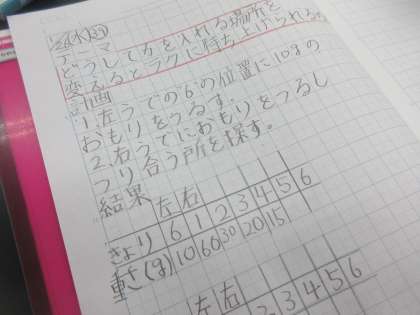 テーマ
どうして力を入れる場所を
変えるとラクに持ち上げられる。
計画
1左うでの6の位置に10gの
おもりをつるす。
2右うでにおもりをつるし
つり合う所を探す。
結果 左 右
きょり 6 1 2 3 4 5 6
重さ(g) 10 60 30 20 15
左 右
2 3 4 5 6